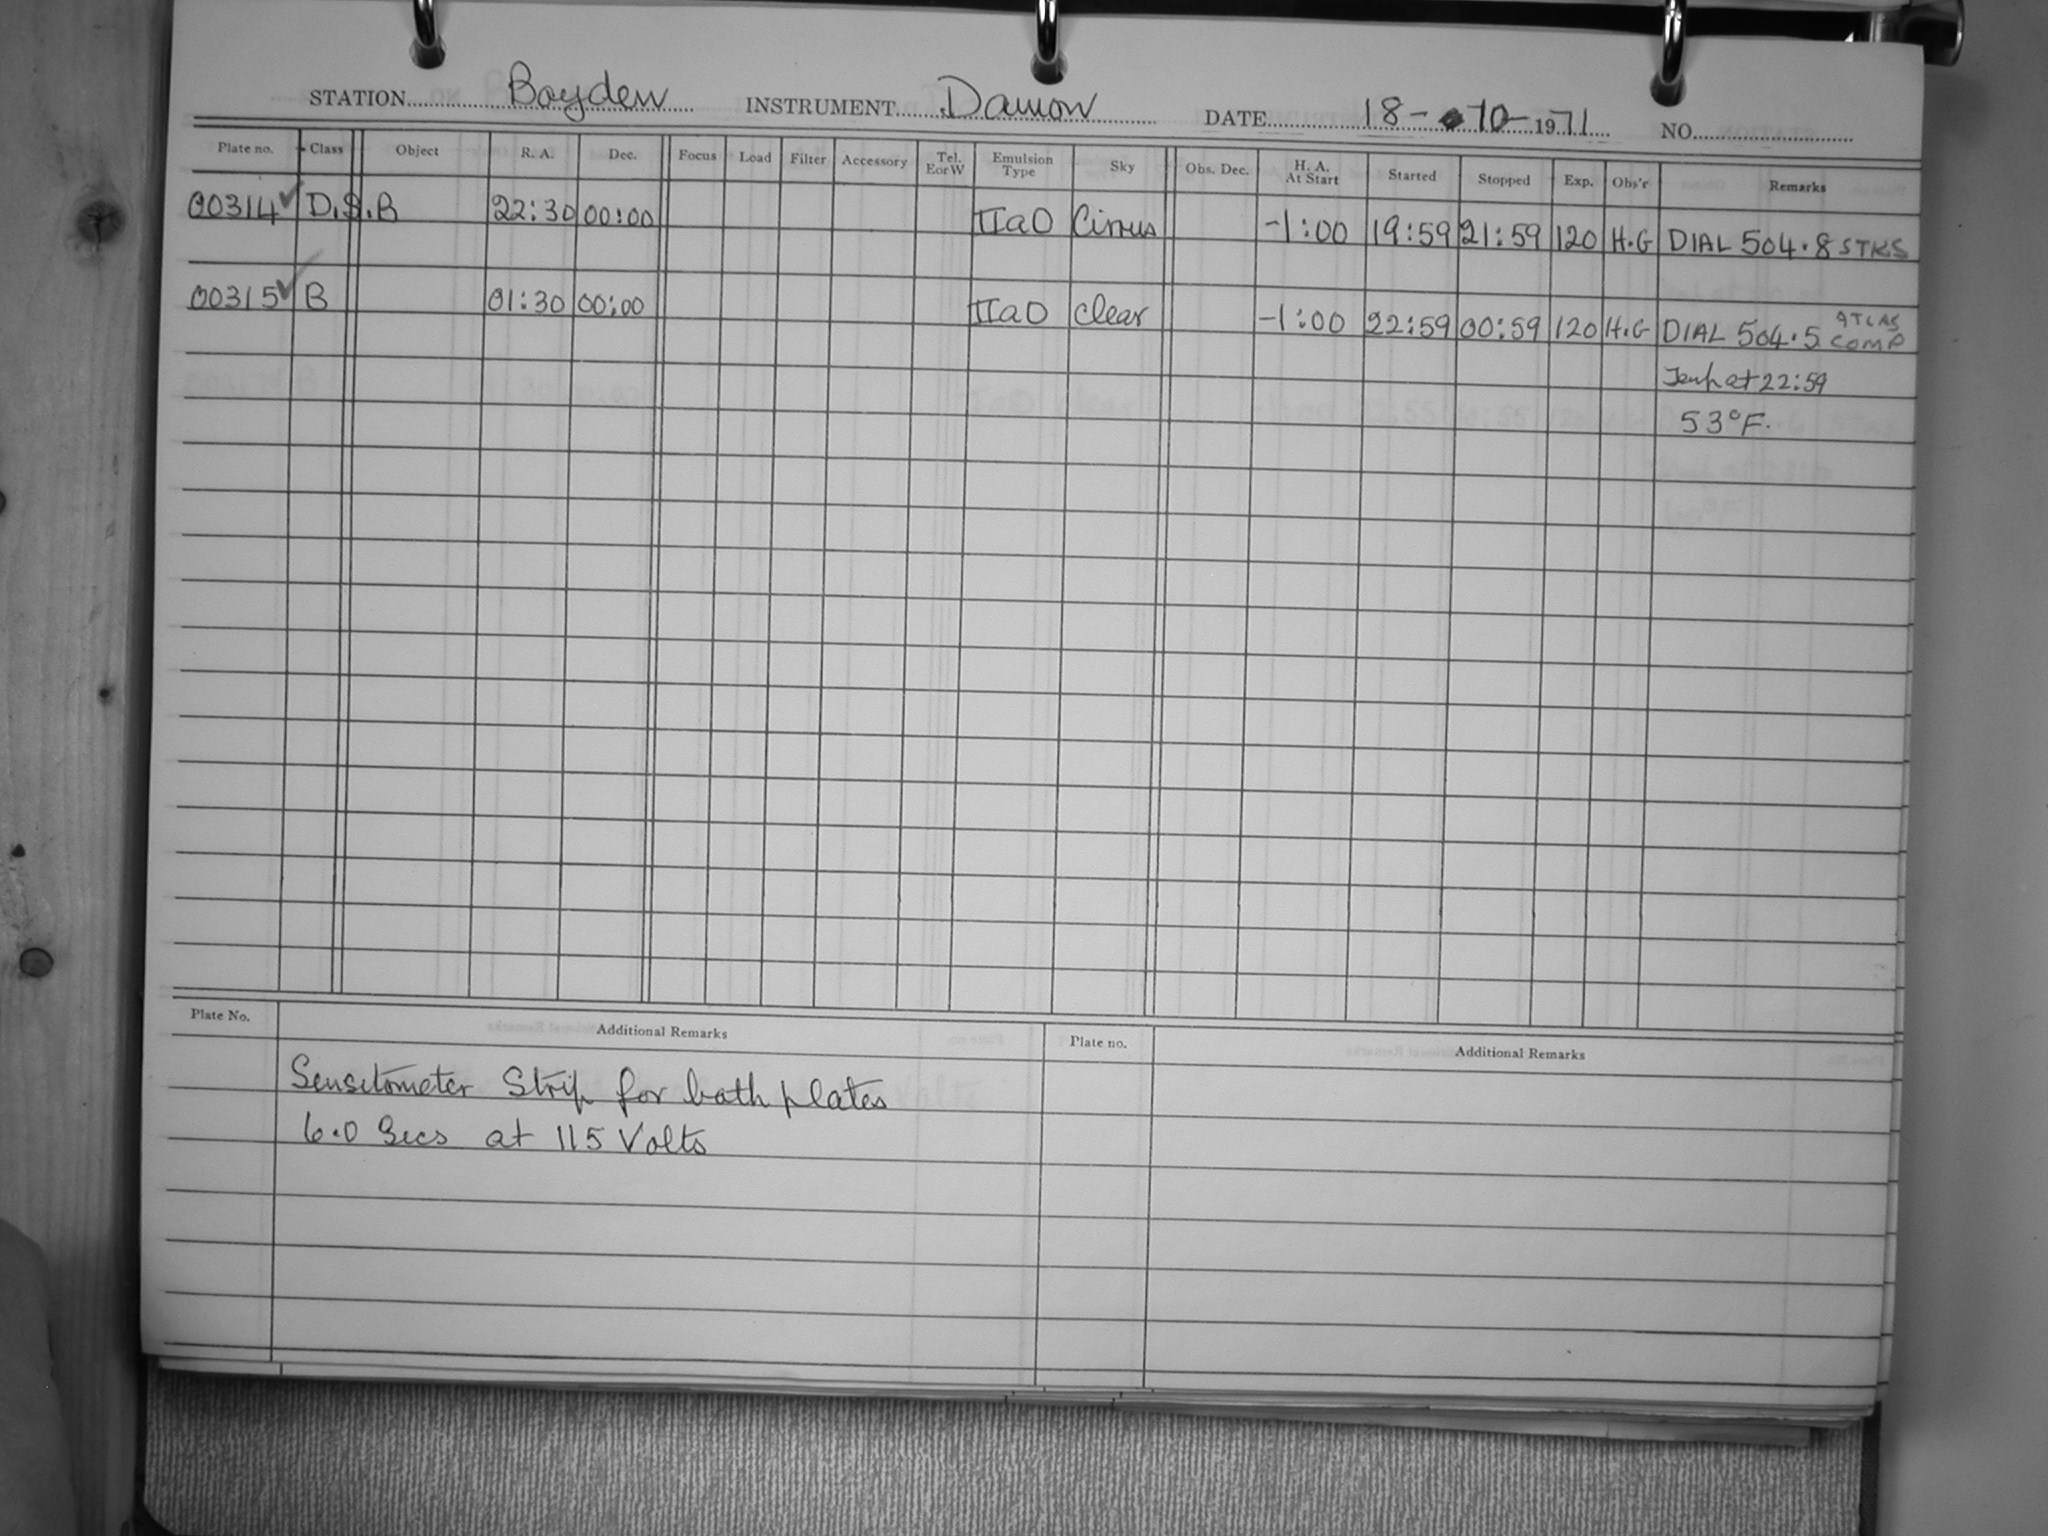 STATION Boyden INSTRUMENT Damon DATE 18-10-1971 NO.
Plate no. Class Object R. A. Dec. Focus Load Filter Accessory Tel. EorW Emulsion Type Sky Obs. Dec. H. A. At Start Started Stopped Exp. Obs'r Remarks
00314 ✓ D.S.B 22:30 00:00 IIaO Cirrus -1:00 19:59 21:59 120 H.G DIAL 504.8 STKS
00315 ✓ B 01:30 00:00 IIaO clear -1:00 22:59 00:59 120 H.G DIAL 504.5 ATLAS COMP
Temp at 22:59
53°F.
Plate No. Additional Remarks Plate no. Additional Remarks
Sensitometer Strip for both plates
6.0 Secs at 115 Volts